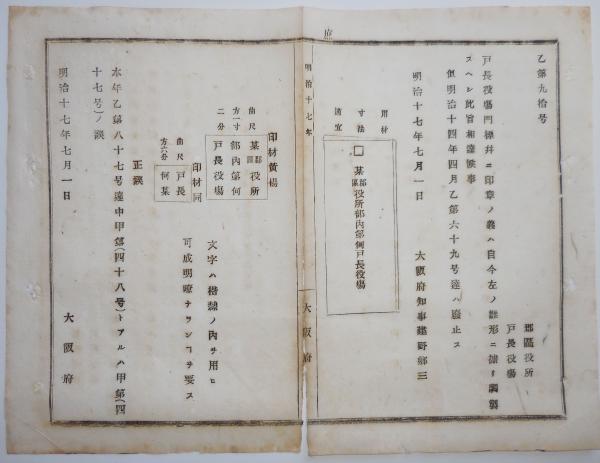 乙第九拾号
郡區役所
戸長役場
戸長役場門標并ニ印章ノ義ハ自今左ノ雛形ニ據リ調製
スヘシ此旨相達候事
但明治十四年四月乙第六十九号達ハ廢止ス
明治十七年七月一日
大阪府知事建野郷三
用材
寸法
適宜
□某郡區役所部内第何戸長役場
明治十七年
大阪府
印材黄楊
曲尺
方一寸
二分
某郡區役所
部内第何
戸長役場
印材同
曲尺
方六分
戸長
何某
文字ハ楷隷ノ内ヲ用ヒ
可成明瞭ナランヿヲ要ス
正誤
本年乙第八十七号達中甲第(四十八号)トアルハ甲第(四
十七号)ノ誤
明治十七年七月一日
大阪府